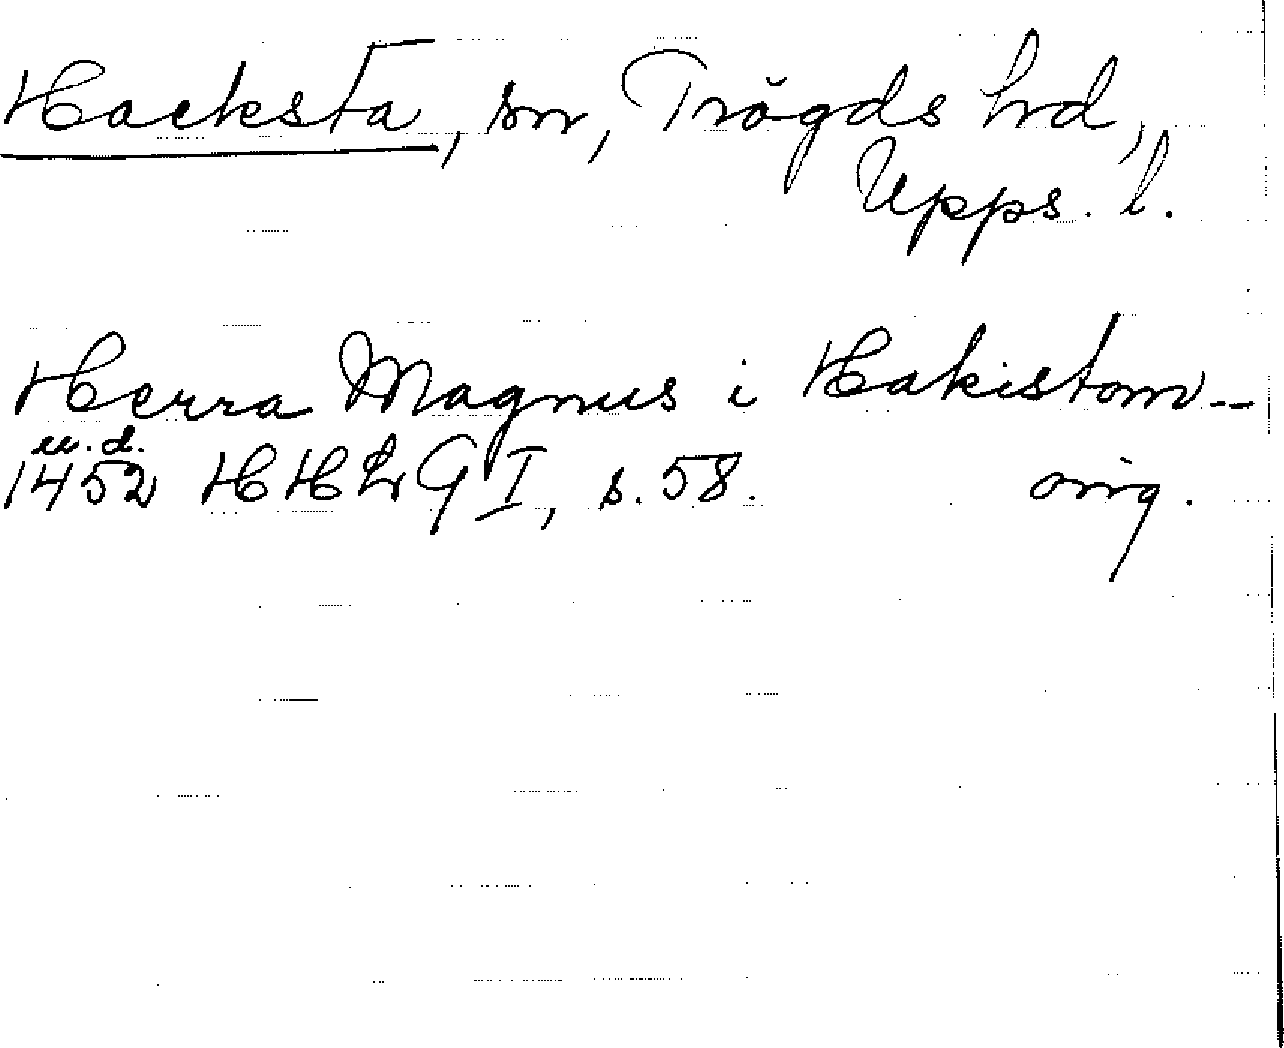 Hacksta, sn, Trögds hrd,
Upps. l.
Herra Magnus i Hakistom --
u. d.
1452 HHLG I, s. 58. orig.